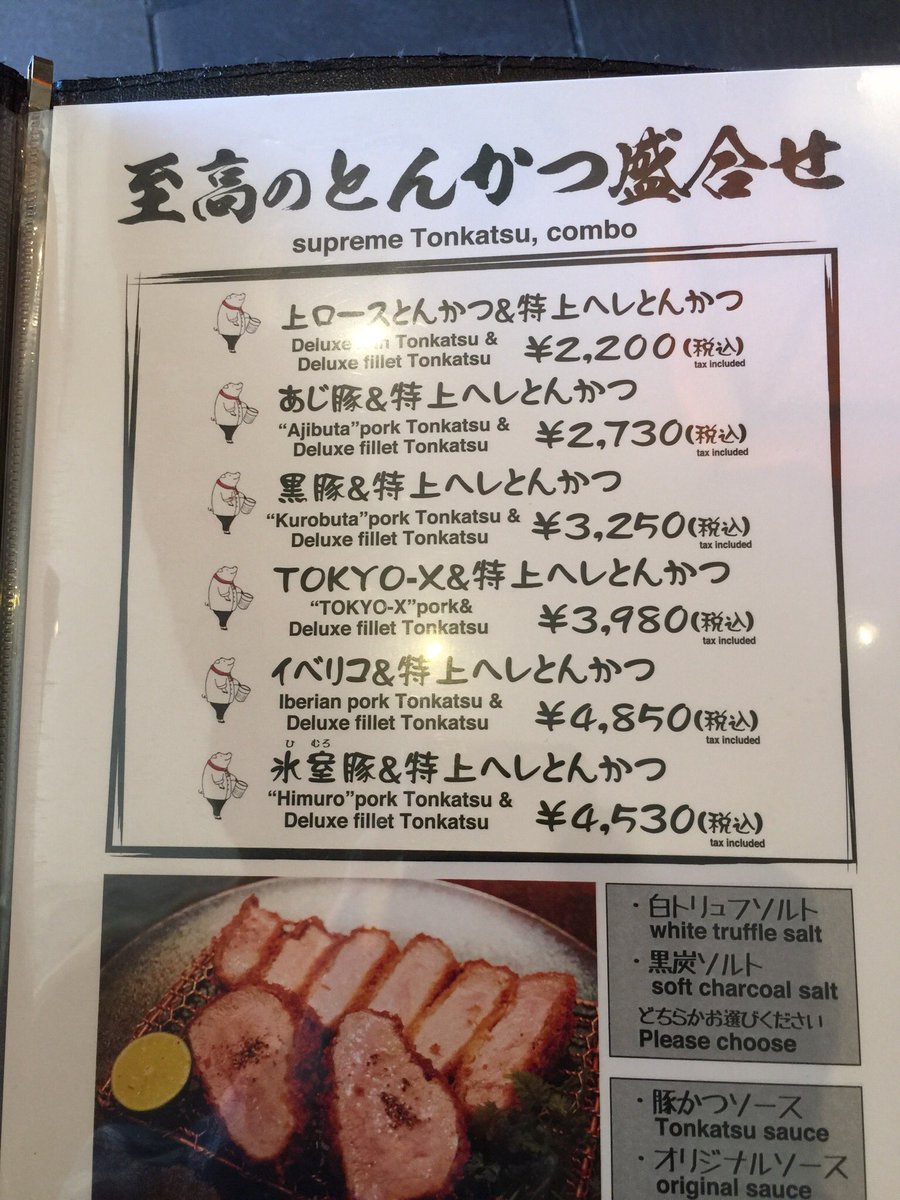 至高のとんかつ盛合せ
supreme Tonkatsu, combo
上ロースとんかつ&特上ヘレとんかつ
Deluxe Tonkatsu &
Deluxe fillet Tonkatsu
¥2,200(税込)
tax included
あじ豚&特上ヘレとんかつ
“Ajibuta”pork Tonkatsu &
Deluxe fillet Tonkatsu
¥2,730(税込)
tax included
黒豚&特上ヘレとんかつ
“Kurobuta”pork Tonkatsu &
Deluxe fillet Tonkatsu
¥3,250(税込)
tax included
TOKYO-X&特上ヘレとんかつ
“TOKYO-X”pork&
Deluxe fillet Tonkatsu
¥3,980(税込)
tax included
イベリコ&特上ヘレとんかつ
Iberian pork Tonkatsu &
Deluxe fillet Tonkatsu
¥4,850(税込)
tax included
ひ むろ
氷室豚&特上ヘレとんかつ
“Himuro”pork Tonkatsu &
Deluxe fillet Tonkatsu
¥4,530(税込)
tax included
・白トリュフソルト
white truffle salt
・黒炭ソルト
soft charcoal salt
どちらかお選びください
Please choose
・豚かつソース
Tonkatsu sauce
・オリジナルソース
original sauce